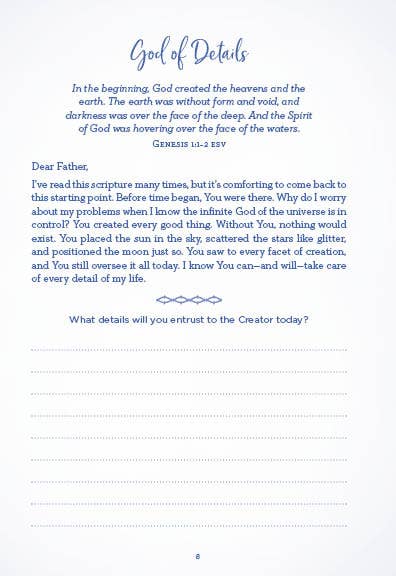 God of Details
In the beginning, God created the heavens and the
earth. The earth was without form and void, and
darkness was over the face of the deep. And the Spirit
of God was hovering over the face of the waters.
Genesis 1:1–2 esv
Dear Father,
I've read this scripture many times, but it's comforting to come back to
this starting point. Before time began, You were there. Why do I worry
about my problems when I know the infinite God of the universe is in
control? You created every good thing. Without You, nothing would
exist. You placed the sun in the sky, scattered the stars like glitter,
and positioned the moon just so. You saw to every facet of creation,
and You still oversee it all today. I know You can—and will—take care
of every detail of my life.
What details will you entrust to the Creator today?
8